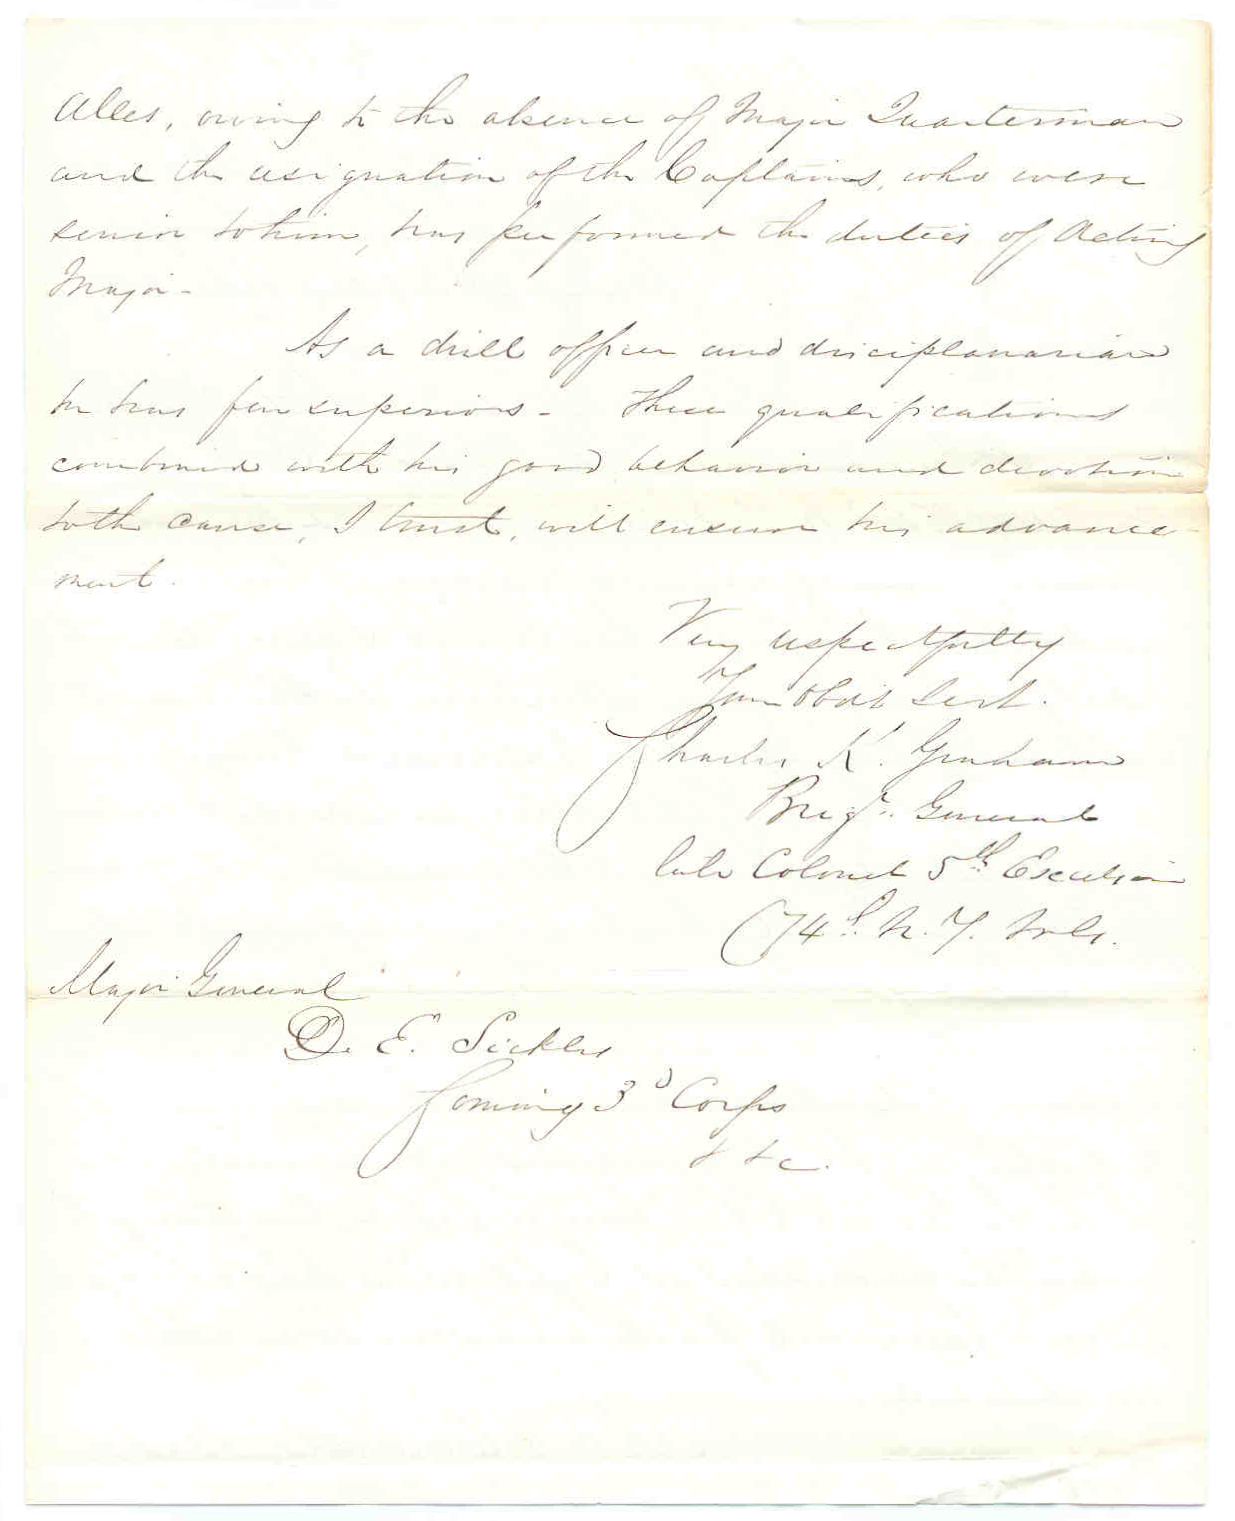 Alles, owing to the absence of Major Quarterman
and the resignation of the Captains, who were
senior to him, has performed the duties of Acting
Major -
As a drill officer and disciplanarian
he has few superiors - These qualifications
combined with his good behavior and devotion
to the cause, I trust, will ensure his advance-
ment.
Very respectfully
Your Obdt Servt.
Charles K. Graham
Brigr. General
late Colonel 5th Excelsior
(74th N. Y. Vols.
Major General
D. E. Sickles
Coming 3d Corps
& &c.